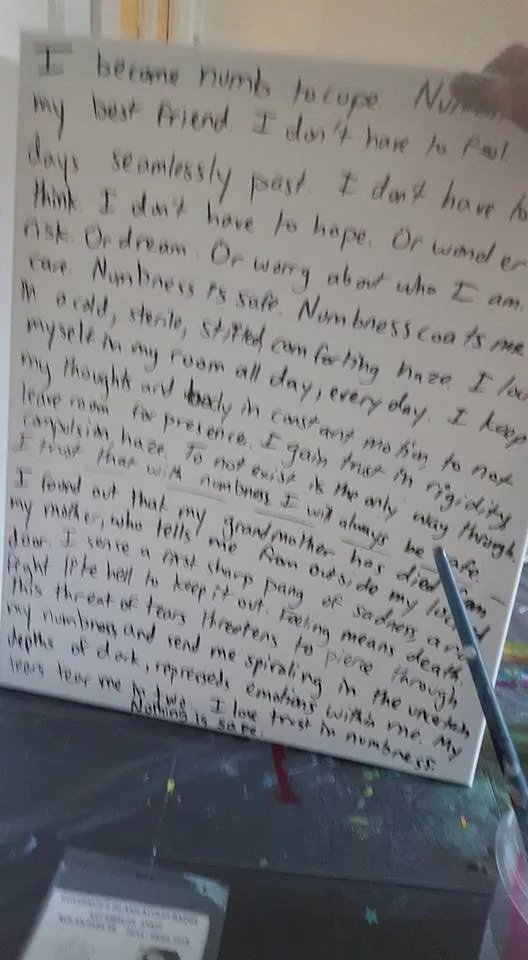 I become numb to cope.
my best friend. I don't have to feel.
days seamlessly past. I don't have to
think. I don't have to hope. Or wonder
Ask. Or dream. Or worry about who I am.
care. Numbness is safe. Numbness coats me
in a cold, sterile, stilted, comforting haze. I
myself in my room all day, every day. I keep
my thoughts and body in constant motion, to not
leave room for presence. I gain trust in rigidity,
compulsion, haze. To not exist is the only way through.
I trust that with numbness I will always be safe.
I found out that my grandmother has died from
my mother, who tells me from outside my locked
door. I sense a first sharp pang of sadness and
fight like hell to keep it out. Feeling means death.
This threat of tears threatens to pierce through
my numbness and send me spiraling in the
depths of dark, represseds emotions within me. My
tears tear me in two. I lose trust in numbness.
Nothing is safe.